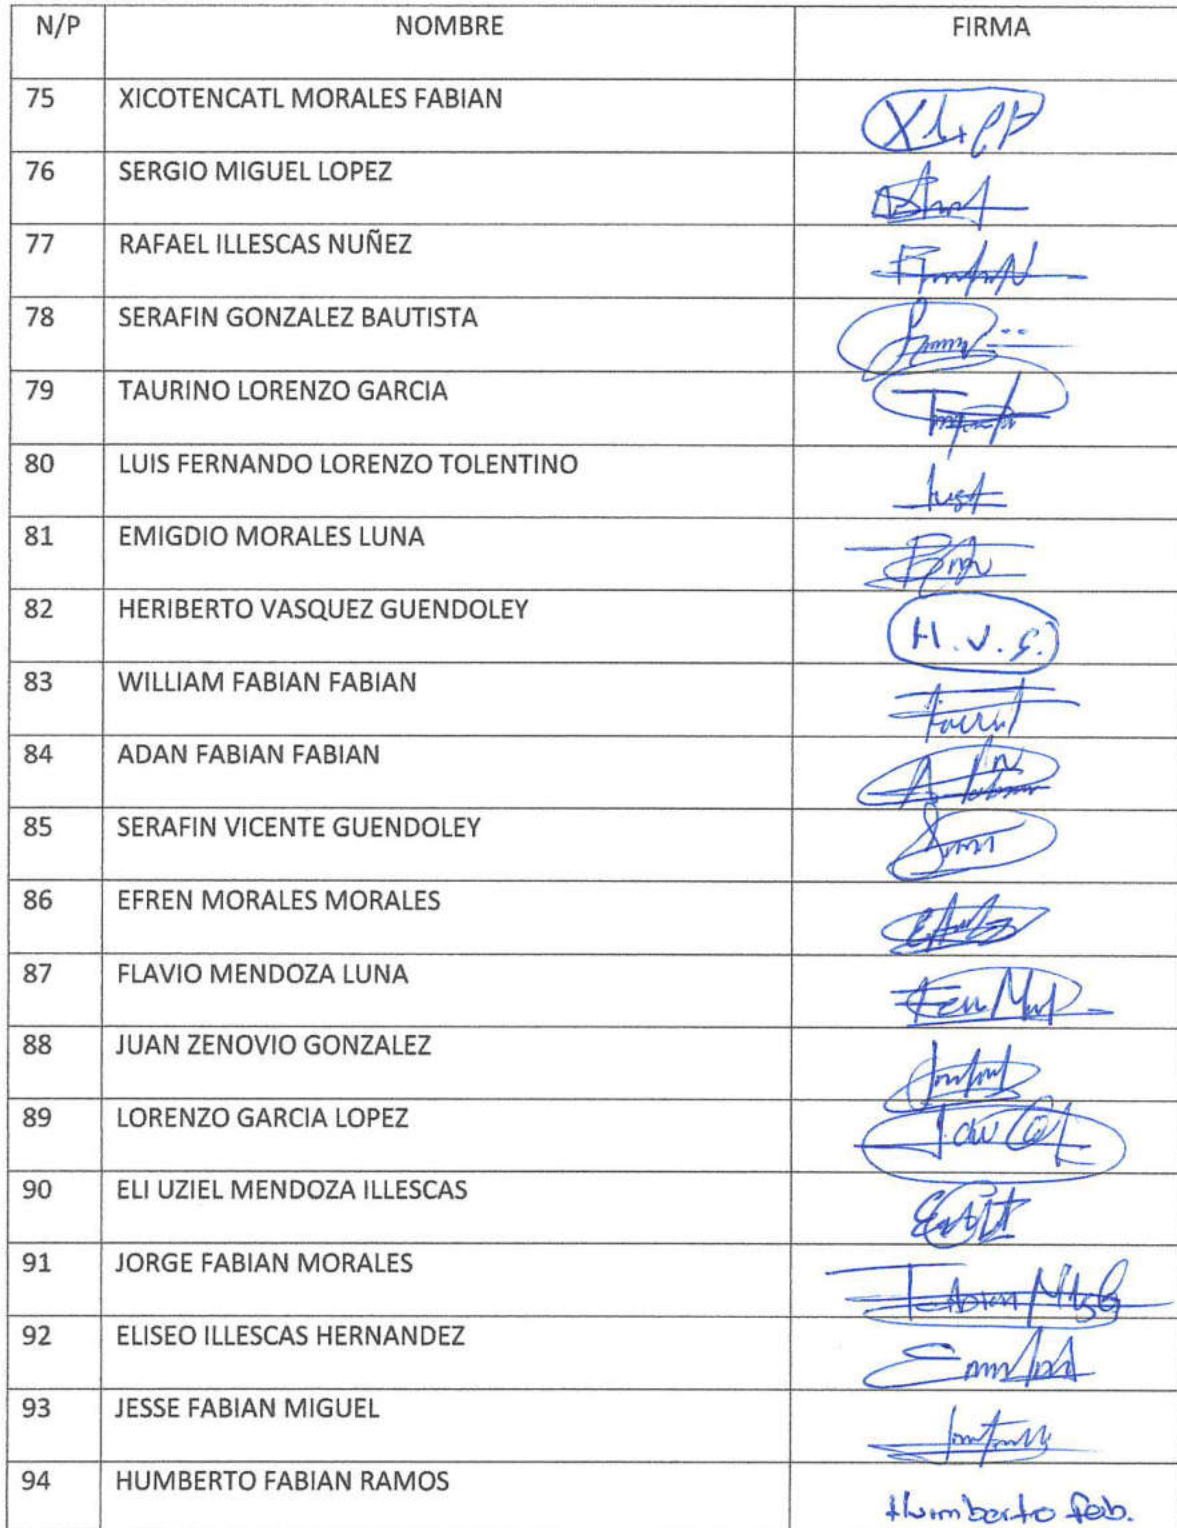 N/P NOMBRE FIRMA
75 XICOTENCATL MORALES FABIAN
76 SERGIO MIGUEL LOPEZ
77 RAFAEL ILLESCAS NUÑEZ
78 SERAFIN GONZALEZ BAUTISTA
79 TAURINO LORENZO GARCIA
80 LUIS FERNANDO LORENZO TOLENTINO
81 EMIGDIO MORALES LUNA
82 HERIBERTO VASQUEZ GUENDOLEY H.V.G.
83 WILLIAM FABIAN FABIAN
84 ADAN FABIAN FABIAN
85 SERAFIN VICENTE GUENDOLEY
86 EFREN MORALES MORALES
87 FLAVIO MENDOZA LUNA
88 JUAN ZENOVIO GONZALEZ
89 LORENZO GARCIA LOPEZ
90 ELI UZIEL MENDOZA ILLESCAS
91 JORGE FABIAN MORALES
92 ELISEO ILLESCAS HERNANDEZ
93 JESSE FABIAN MIGUEL
94 HUMBERTO FABIAN RAMOS Humberto fab.